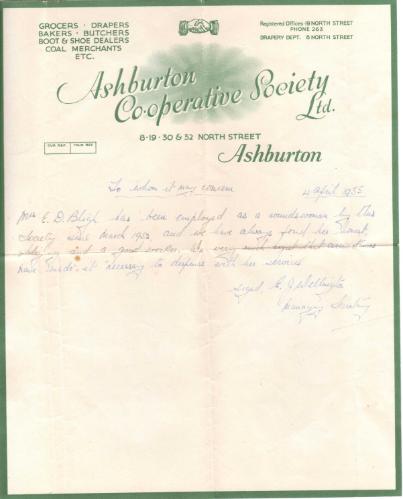 GROCERS · DRAPERS
BAKERS · BUTCHERS
BOOT & SHOE DEALERS
COAL MERCHANTS
ETC.
Registered Offices 19 NORTH STREET
PHONE 263
DRAPERY DEPT. 8 NORTH STREET
Ashburton
Co-operative Society
Ltd.
8·19·30 & 32 NORTH STREET
Ashburton
OUR REF. YOUR REF.
To whom it may concern
4 April 1955
E. D. Bligh has been employed as a roundswoman by this
Society since March 1953 and we have always found her honest,
and a good worker. We very much regret that circumstances
have made it necessary to dispense with her services
Signed,
Managing Secretary